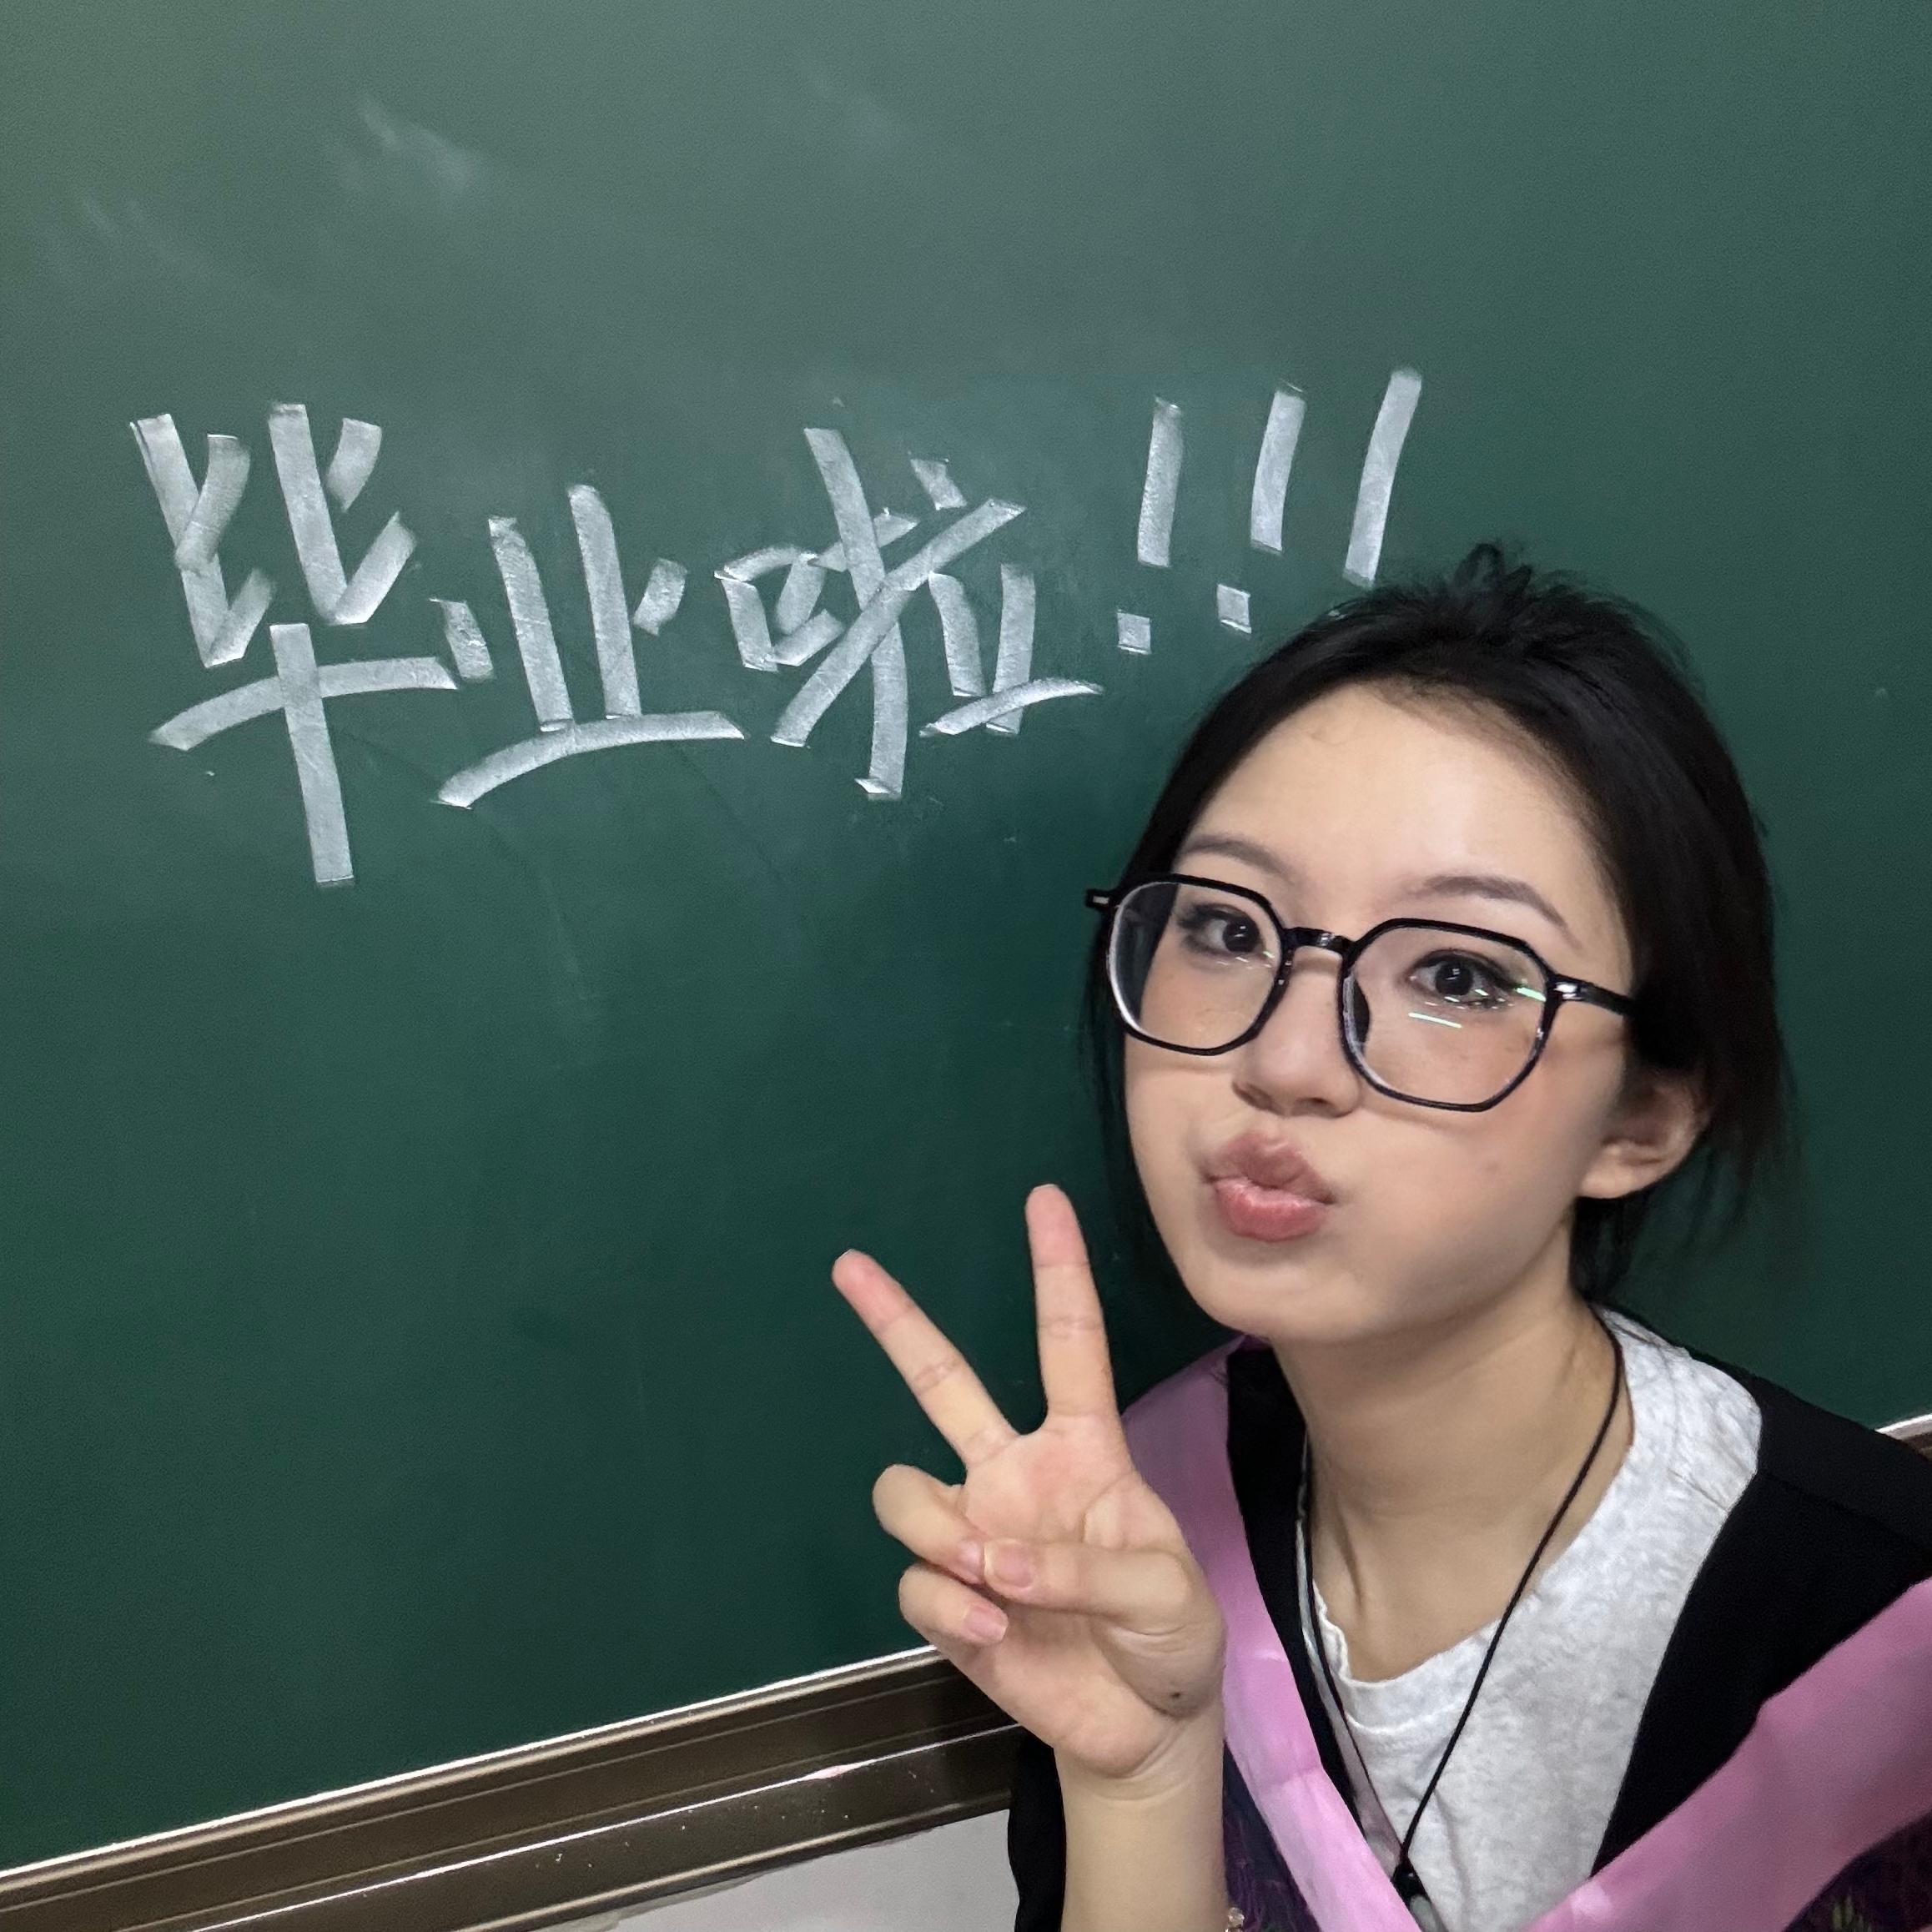 毕业啦!!!